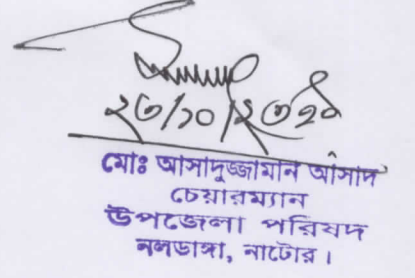 মোঃ আসাদুজ্জামান আসাদ
চেয়ারম্যান
উপজেলা পরিষদ
নলডাঙ্গা, নাটোর।